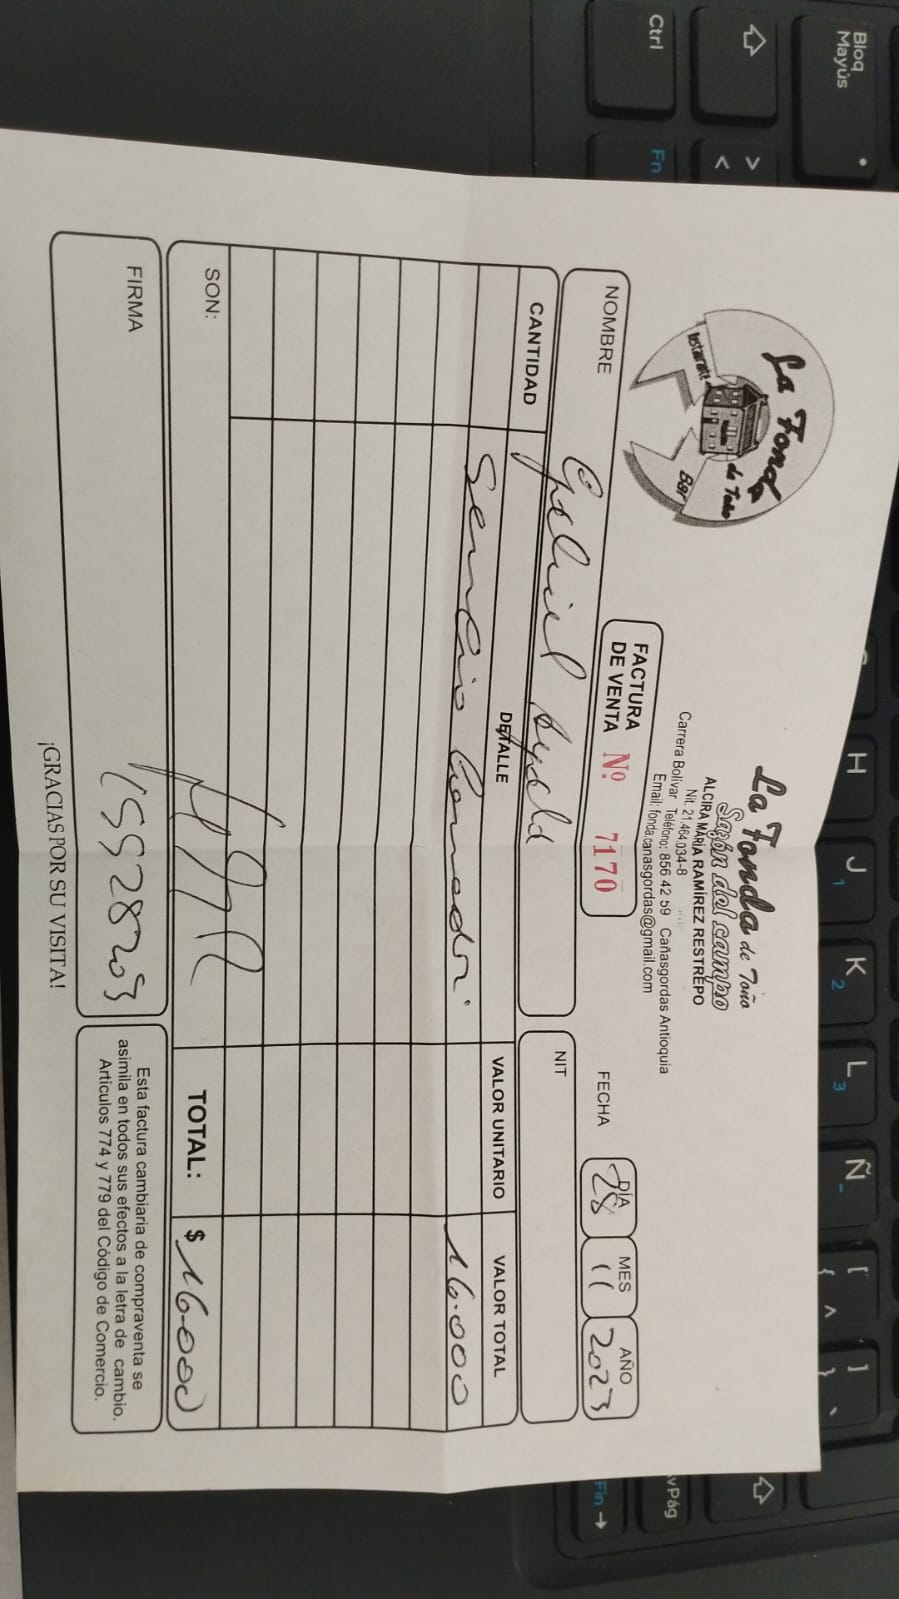 La Fonda
de Toño
Restaurante
Bar
La Fonda de Toño
Sazón del campo
ALCIRA MARÍA RAMÍREZ RESTREPO
Nit. 21.464.034-8
Carrera Bolívar Teléfono: 856 42 59 Cañasgordas Antioquia
Email: fonda.canasgordas@gmail.com
FACTURA
DE VENTA Nº 7170
FECHA
DÍA MES AÑO
28 11 2023
NOMBRE
NIT
CANTIDAD DETALLE VALOR UNITARIO VALOR TOTAL
Servicio 16.000
SON:
TOTAL: $ 16.000
FIRMA
Esta factura cambiaria de compraventa se
asimila en todos sus efectos a la letra de cambio.
Artículos 774 y 779 del Código de Comercio.
¡GRACIAS POR SU VISITA!
Bloq
Mayús
Ctrl
Fn
> <
H
J 1
K 2
L 3
Ñ
[ { ^
] }
vPág
Fin